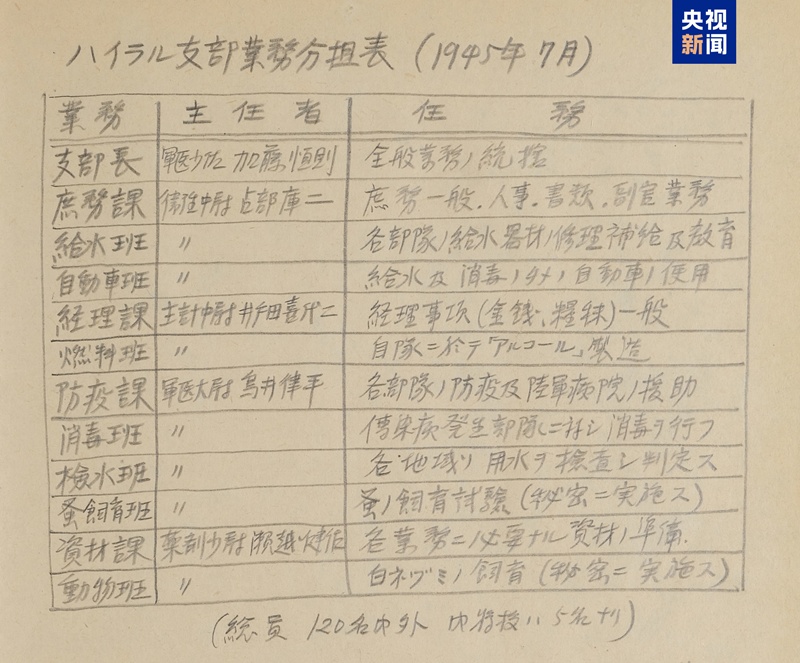 央视
新闻
ハイラル支部業務分担表 (1945年7月)
業務 主任者 任務
支部長 軍医少佐 加藤恒則 全般業務ノ統括
庶務課 衛准中尉 占部庫二 庶務一般.人事.書類.副官業務
給水班 〃 各部隊ノ給水器材ノ修理補給及教育
自動車班 〃 給水及消毒ノタメノ自動車ノ使用
経理課 主計中尉 井戸田喜代二 経理事項(金銭、糧秣)一般
燃料班 〃 自隊ニ於テ「アルコール」製造
防疫課 軍医大尉 鳥井律平 各部隊ノ防疫及陸軍病院ノ援助
消毒班 〃 傳染病発生部隊ニ対シ消毒ヲ行フ
檢水班 〃 各地域ノ用水ヲ検査シ判定ス
蚤飼育班 〃 蚤ノ飼育試験(秘密ニ実施ス)
資材課 薬剤少尉 瀬越健 各業務ニ必要ナル資材ノ準備.
動物班 〃 白ネヅミノ飼育(秘密ニ実施ス)
(総員 120名内外 内将校ハ5名ナリ)